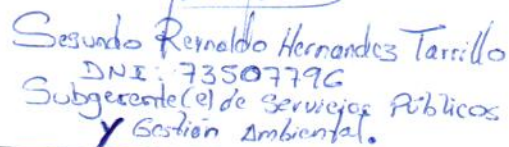 Segundo Reynaldo Hernandez Tarrillo
DNI: 73507796
Subgerente(e) de Servicios Públicos
Y Gestión Ambiental.